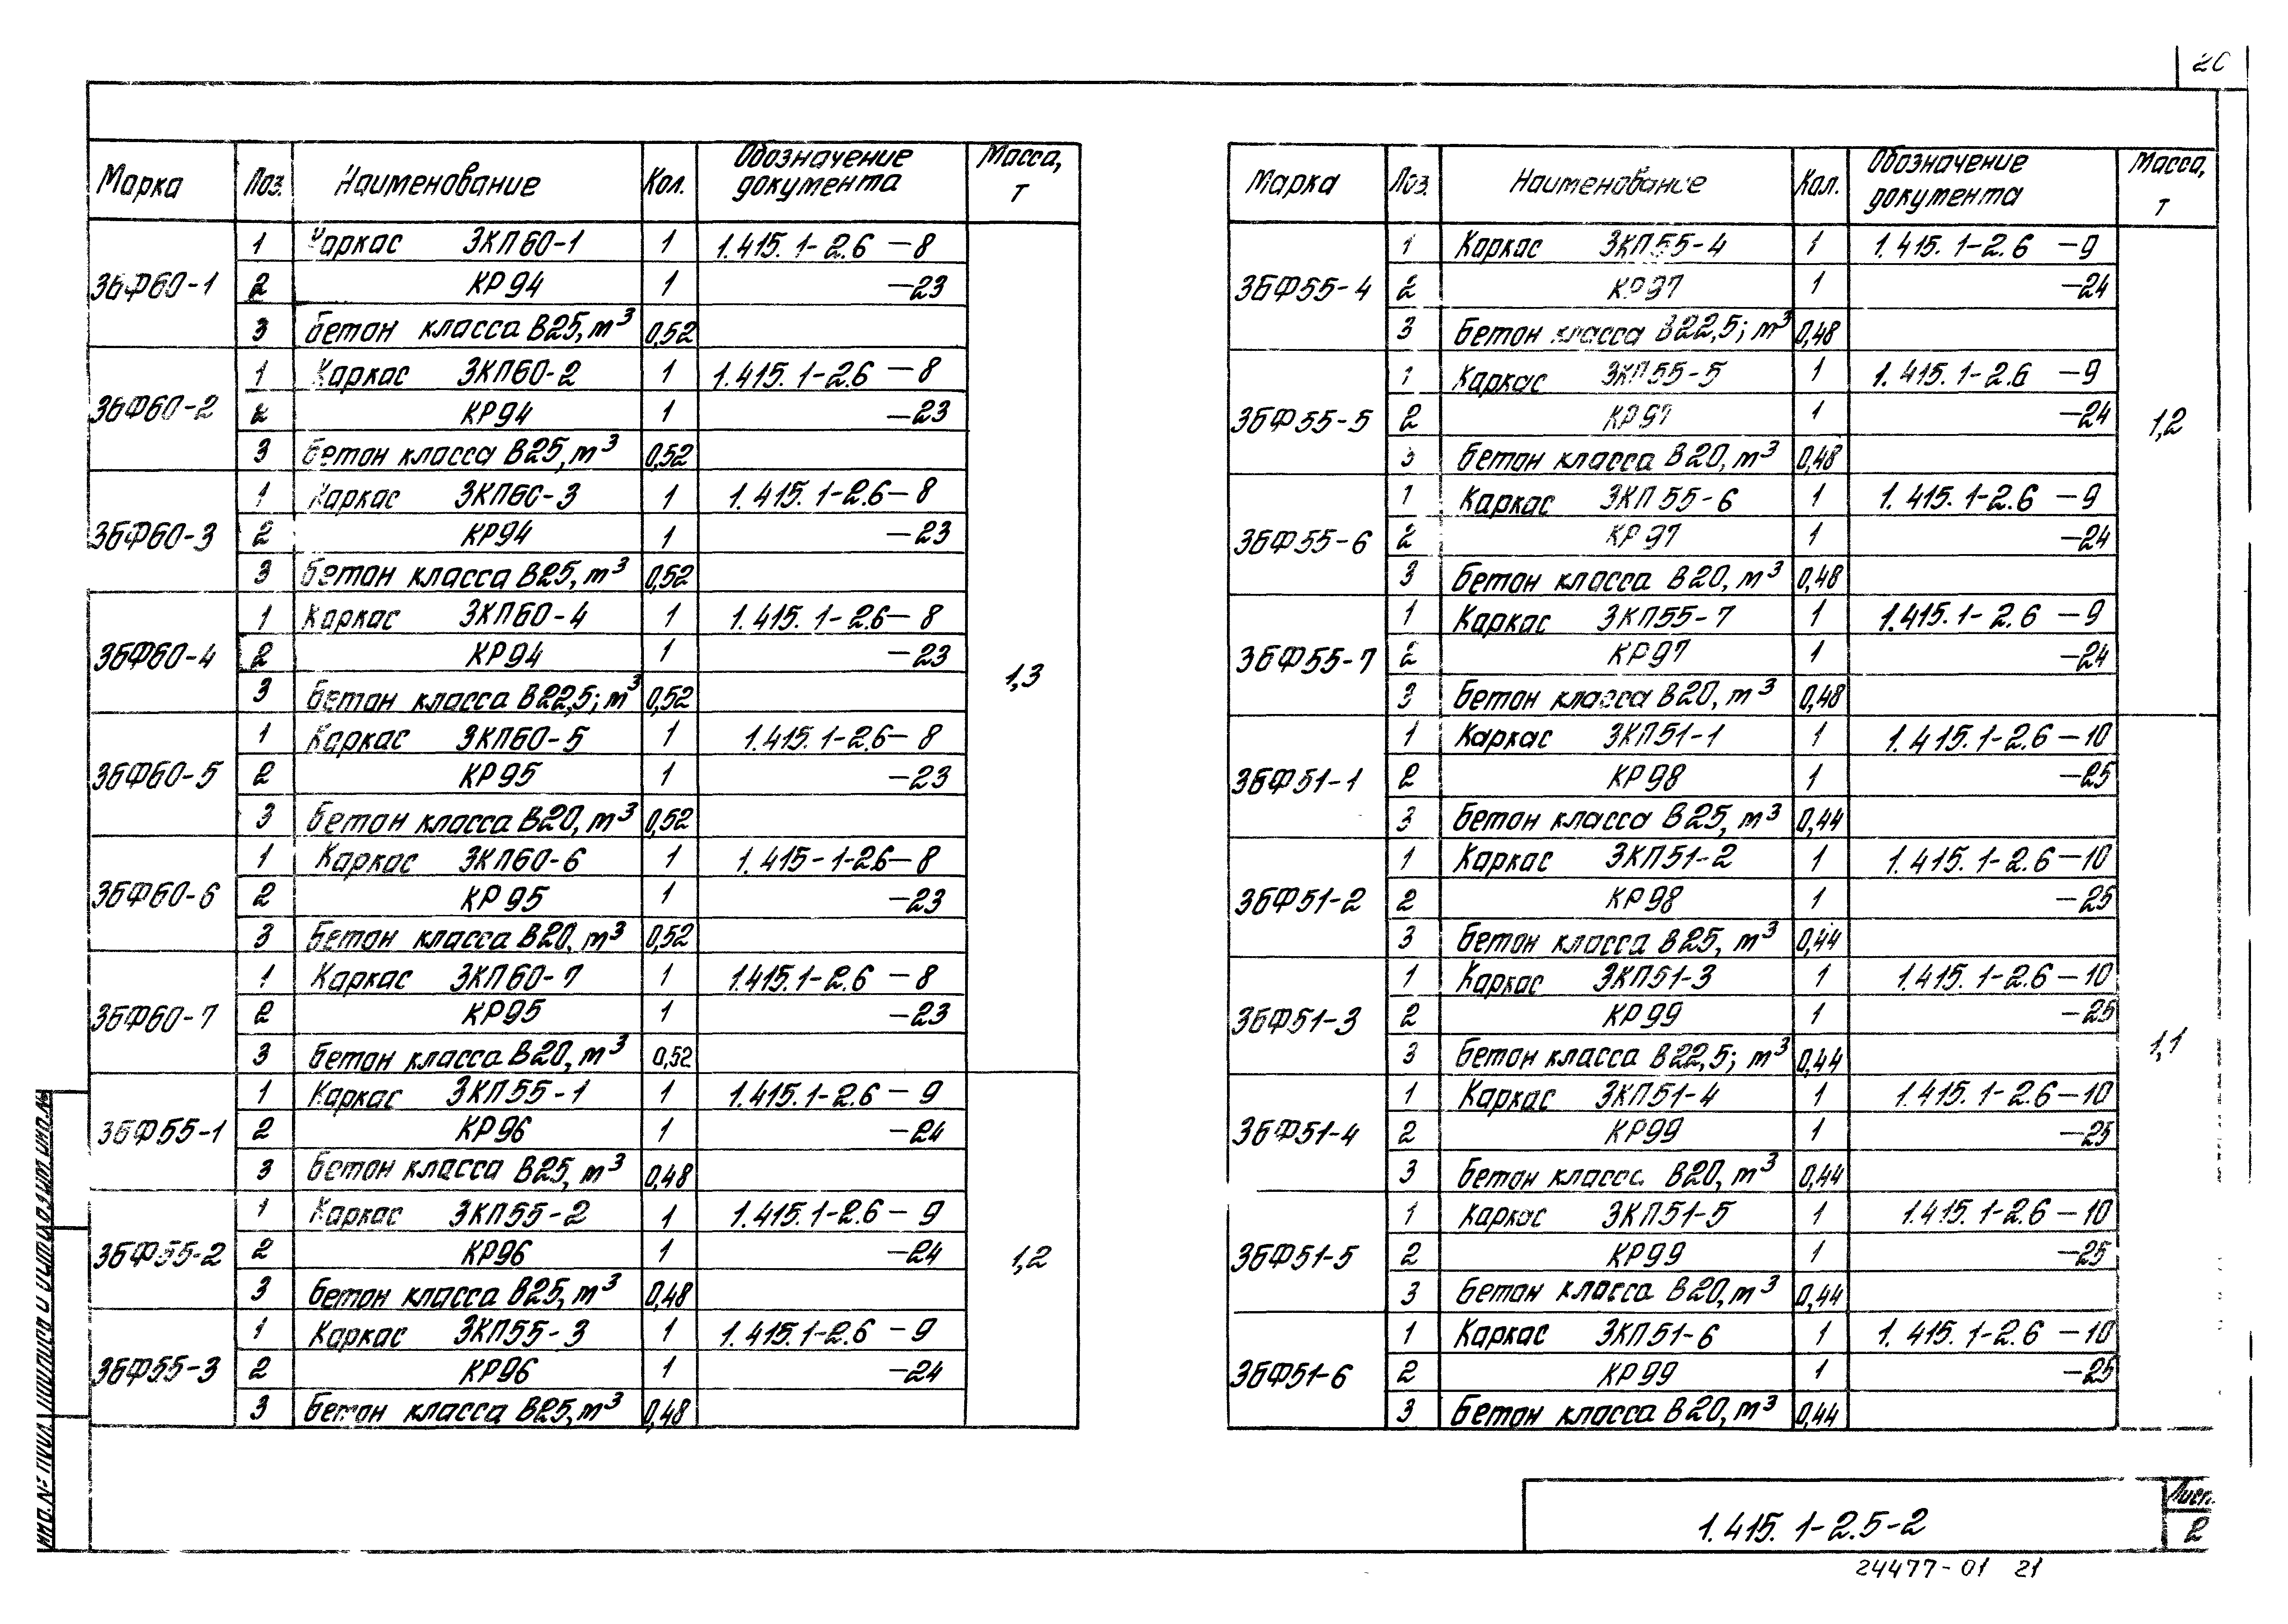 20
Марка Поз. Наименование Кол. Обозначение документа Масса, т
3БФ60-1 1 Каркас 3КП60-1 1 1.415.1-2.6 -8
2 КР94 1 -23
3 Бетон класса В25, м³ 0,52
3БФ60-2 1 Каркас 3КП60-2 1 1.415.1-2.6 -8
2 КР94 1 -23
3 Бетон класса В25, м³ 0,52
3БФ60-3 1 Каркас 3КП60-3 1 1.415.1-2.6-8
2 КР94 1 -23
3 Бетон класса В25, м³ 0,52
3БФ60-4 1 Каркас 3КП60-4 1 1.415.1-2.6-8
2 КР94 1 -23
1,3
3 Бетон класса В22,5; м³ 0,52
3БФ60-5 1 Каркас 3КП60-5 1 1.415.1-2.6-8
2 КР95 1 -23
3 Бетон класса В20, м³ 0,52
3БФ60-6 1 Каркас 3КП60-6 1 1.415-1-2.6-8
2 КР95 1 -23
3 Бетон класса В20, м³ 0,52
3БФ60-7 1 Каркас 3КП60-7 1 1.415.1-2.6 -8
2 КР95 1 -23
3 Бетон класса В20, м³ 0,52
3БФ55-1 1 Каркас 3КП55-1 1 1.415.1-2.6 - 9
2 КР96 1 -24
3 Бетон класса В25, м³ 0,48
3БФ55-2 1 Каркас 3КП55-2 1 1.415.1-2.6 - 9
2 КР96 1 -24 1,2
3 Бетон класса В25, м³ 0,48
3БФ55-3 1 Каркас 3КП55-3 1 1.415.1-2.6 -9
2 КР96 1 -24
3 Бетон класса В25, м³ 0,48
Марка Поз. Наименование Кол. Обозначение документа Масса, т
3БФ55-4 1 Каркас 3КП55-4 1 1.415.1-2.6 -9
2 КР97 1 -24
3 Бетон класса В22,5; м³ 0,48
3БФ55-5 1 Каркас 3КП55-5 1 1.415.1-2.6 -9
2 КР97 1 -24 1,2
3 Бетон класса В20, м³ 0,48
3БФ55-6 1 Каркас 3КП55-6 1 1.415.1-2.6 -9
2 КР97 1 -24
3 Бетон класса В20, м³ 0,48
3БФ55-7 1 Каркас 3КП55-7 1 1.415.1-2.6 -9
2 КР97 1 -24
3 Бетон класса В20, м³ 0,48
3БФ51-1 1 Каркас 3КП51-1 1 1.415.1-2.6-10
2 КР98 1 -25
3 Бетон класса В25, м³ 0,44
3БФ51-2 1 Каркас 3КП51-2 1 1.415.1-2.6-10
2 КР98 1 -25
3 Бетон класса В25, м³ 0,44
3БФ51-3 1 Каркас 3КП51-3 1 1.415.1-2.6-10
2 КР99 1 -25
1,1
3 Бетон класса В22,5; м³ 0,44
3БФ51-4 1 Каркас 3КП51-4 1 1.415.1-2.6-10
2 КР99 1 -25
3 Бетон класса В20, м³ 0,44
3БФ51-5 1 Каркас 3КП51-5 1 1.415.1-2.6-10
2 КР99 1 -25
3 Бетон класса В20, м³ 0,44
3БФ51-6 1 Каркас 3КП51-6 1 1.415.1-2.6 -10
2 КР99 1 -25
3 Бетон класса В20, м³ 0,44
Инв.№ подл. Подпись и дата Взам.инв.№
1.415.1-2.5-2
Лист
2
24477-01 21